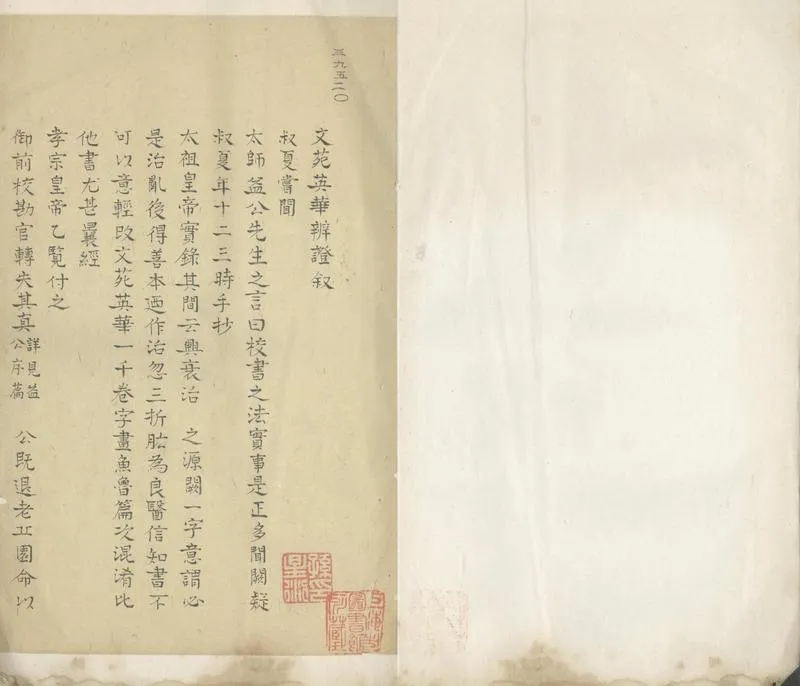 三九五二〇
文苑英華辨證叙
叔夏嘗聞
太師益公先生之言曰校書之法實事是正多聞闕疑
叔夏年十二三時手抄
太祖皇帝實錄其間云興衰治 之源闕一字意謂必
是治亂後得善本廼作治忽三折肱為良醫信知書不
可以意輕改文苑英華一千卷字畫魚魯篇次混淆比
他書尤甚曩經
孝宗皇帝乙覽付之
御前校勘官轉失其真詳見益公序篇 公既退老丘園命以